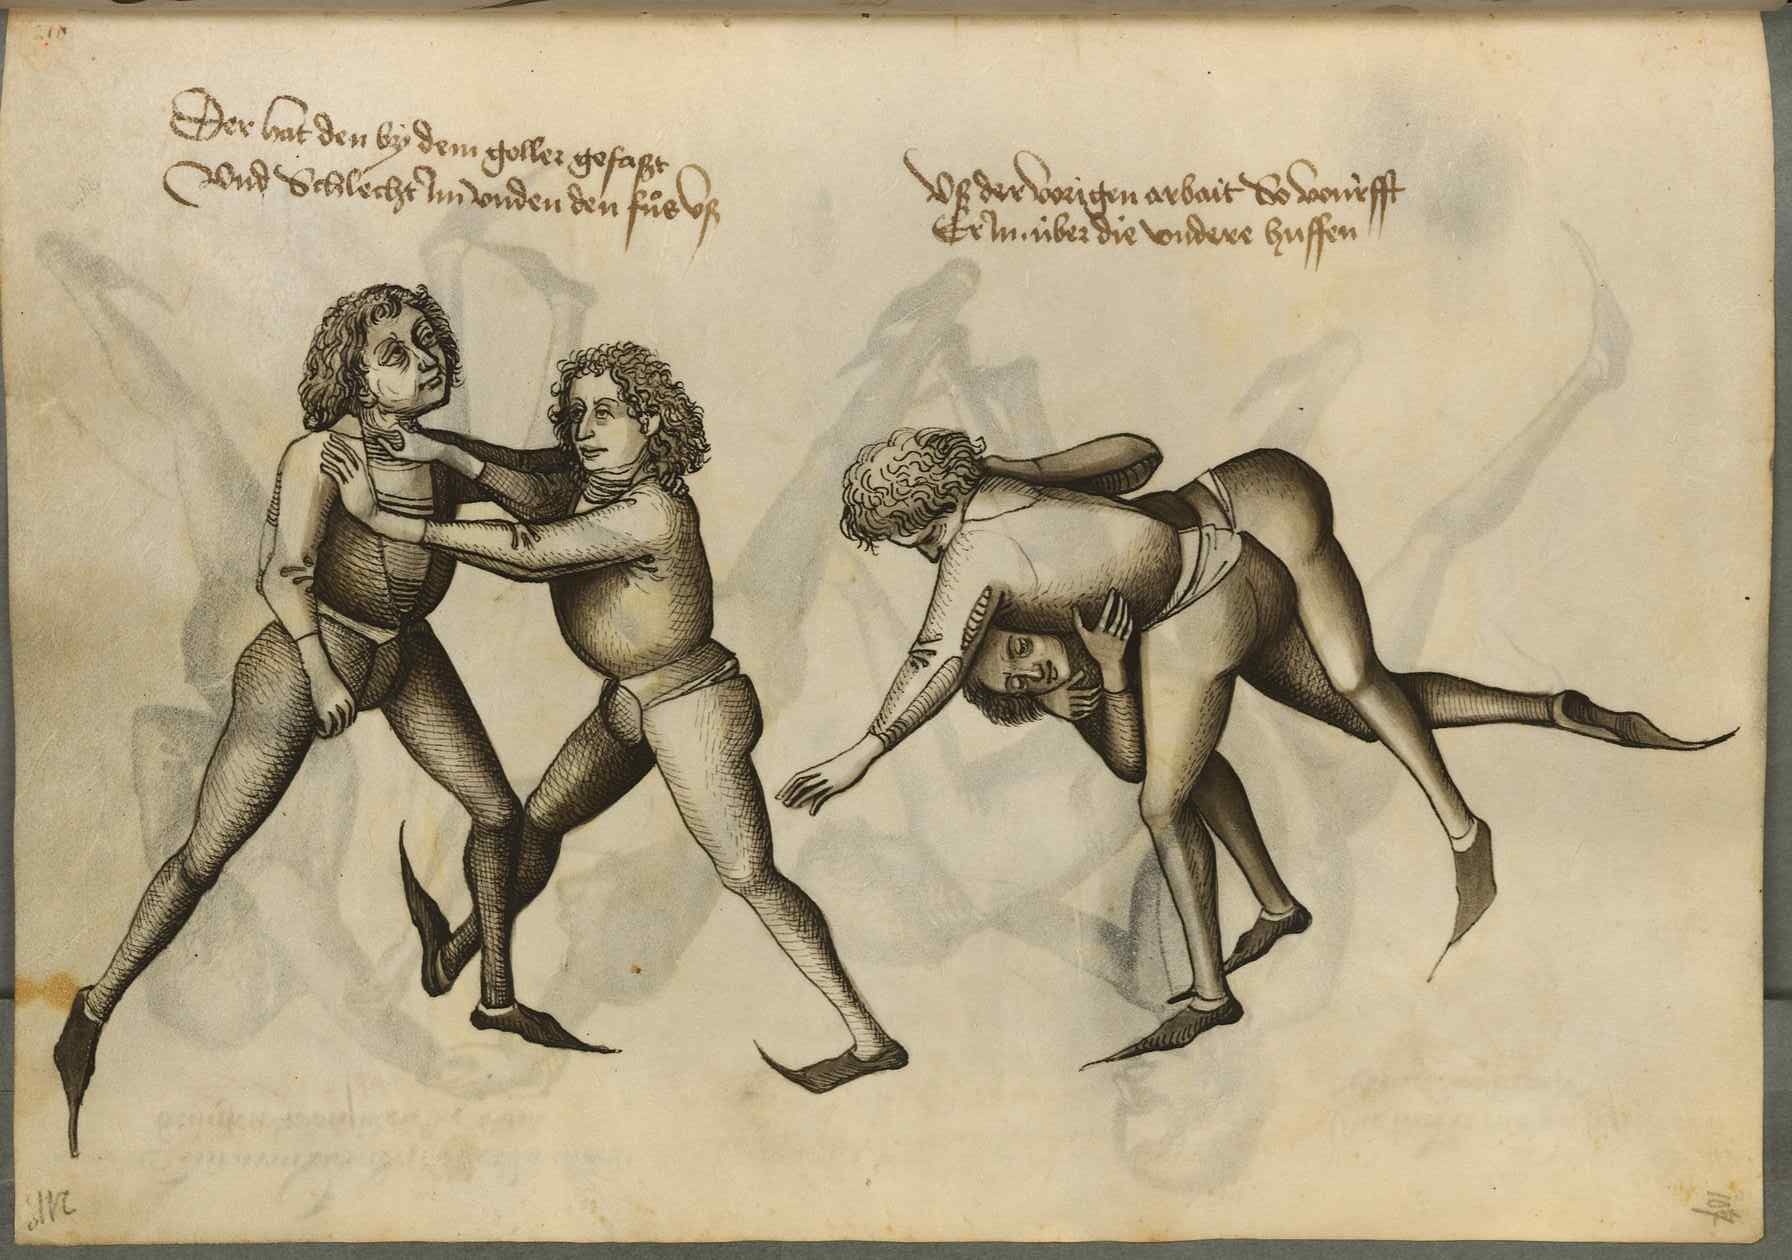 Der hat den by dem goller gefaszt
Vnd Schlecht Im vnden den fůs vß
Vß der vorigen arbait So wůrfft
Er Im über die vndere huffen